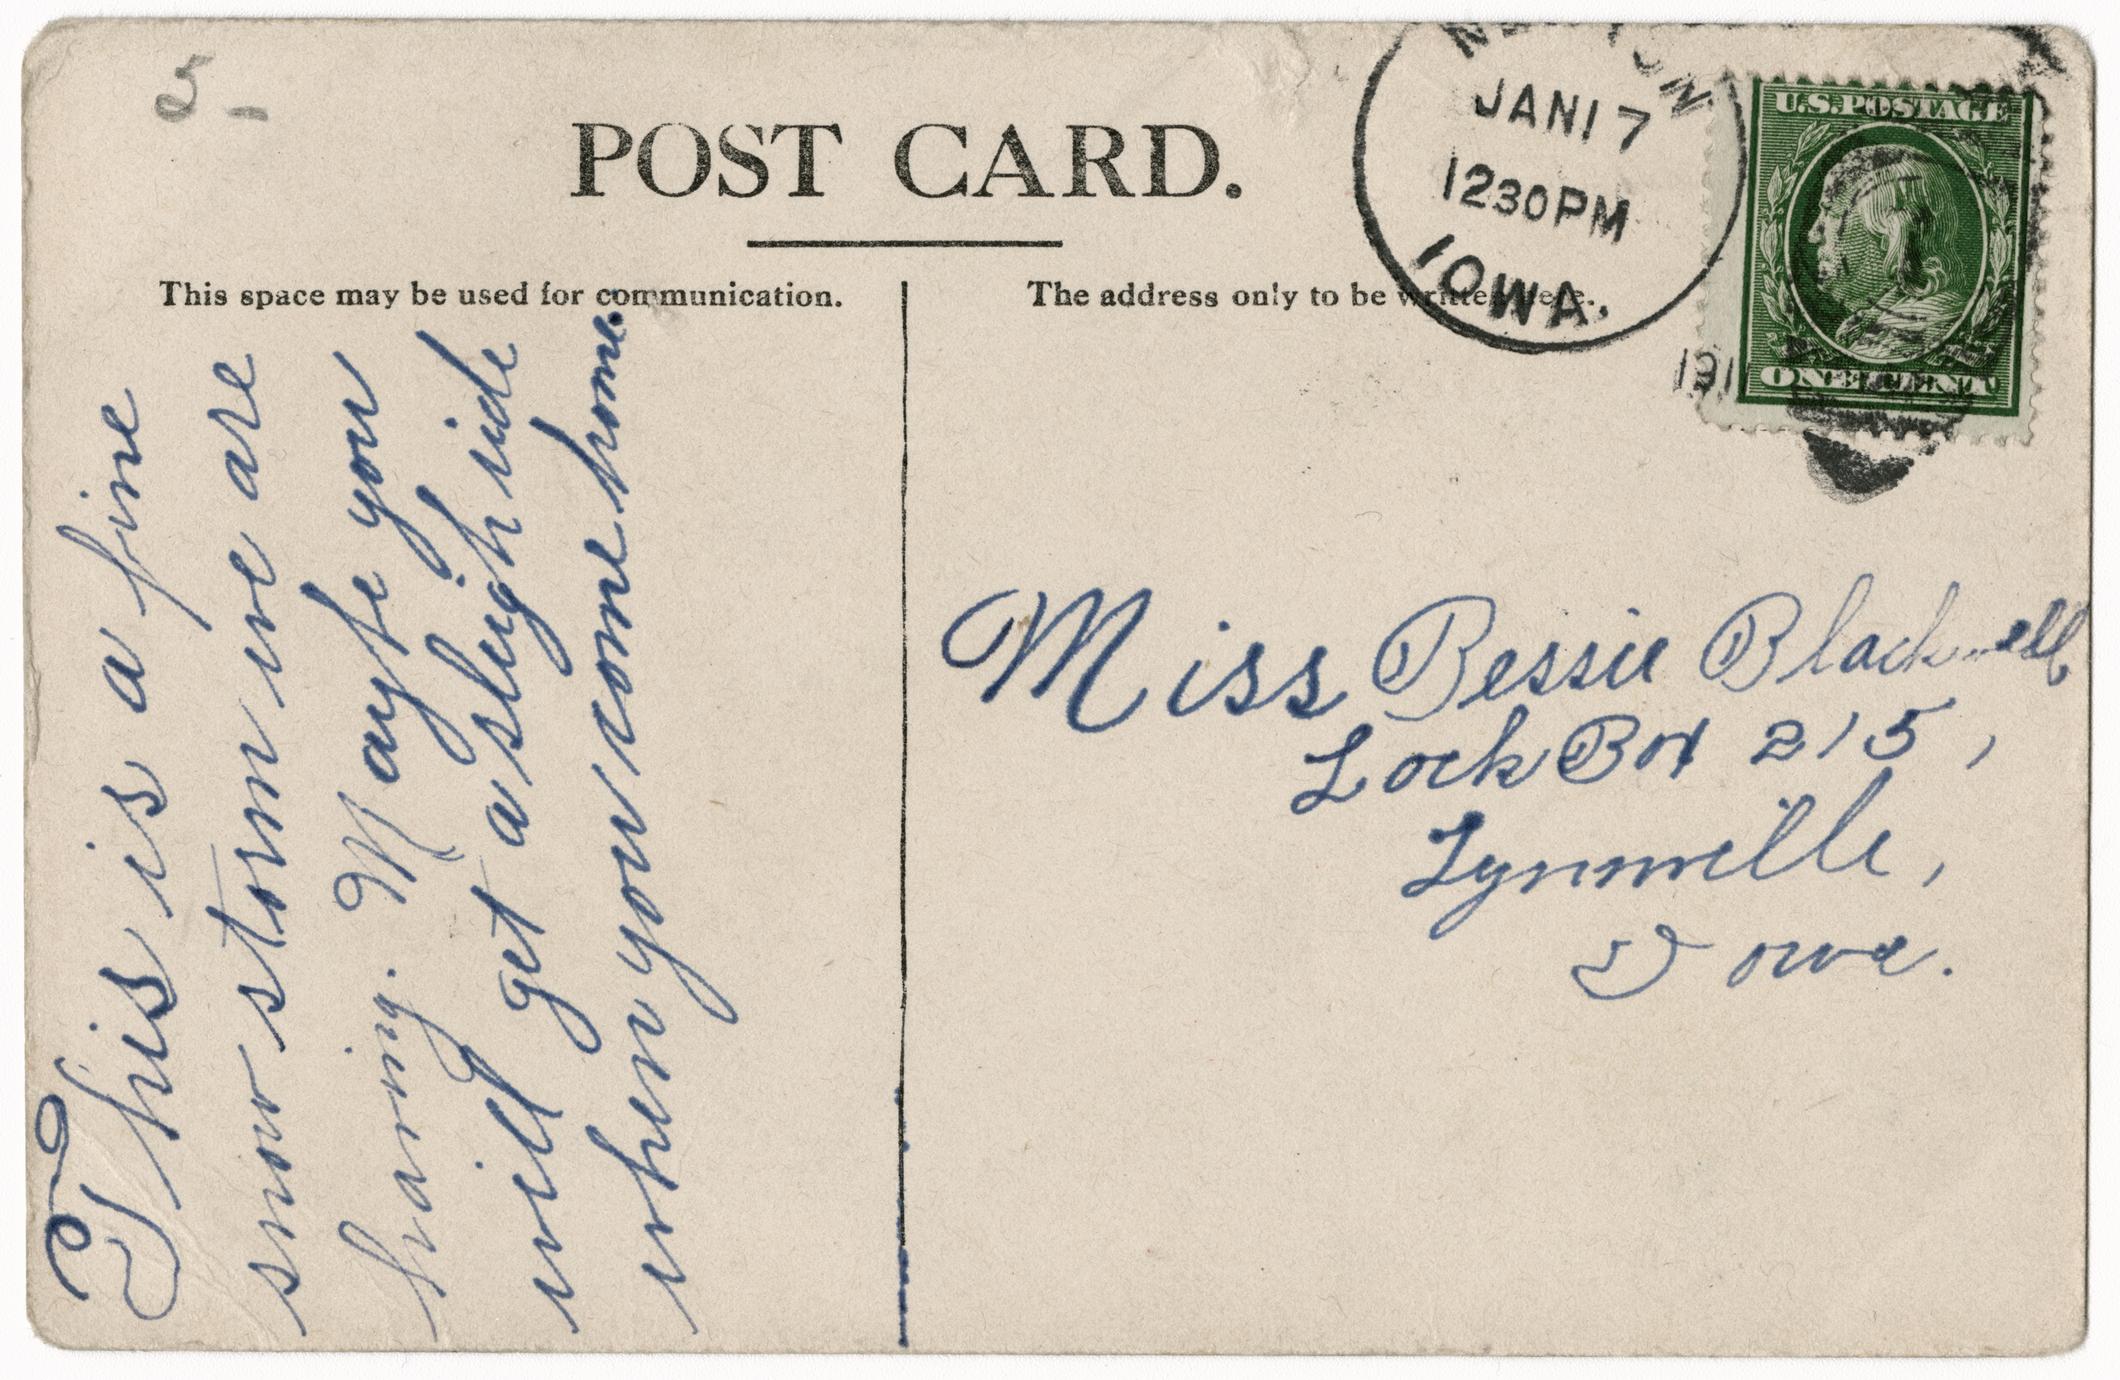 5-
POST CARD.
JAN 17
1230PM
IOWA.
191
U.S. POSTAGE
ONE CENT
This space may be used for communication.
The address only to be written here.
This is a fine
snow storm we are
having. Mayfe you
will get a sleigh ride
when you come home.
Miss Bessie Blackwell
Lock Box 215,
Lynnville,
Iowa.